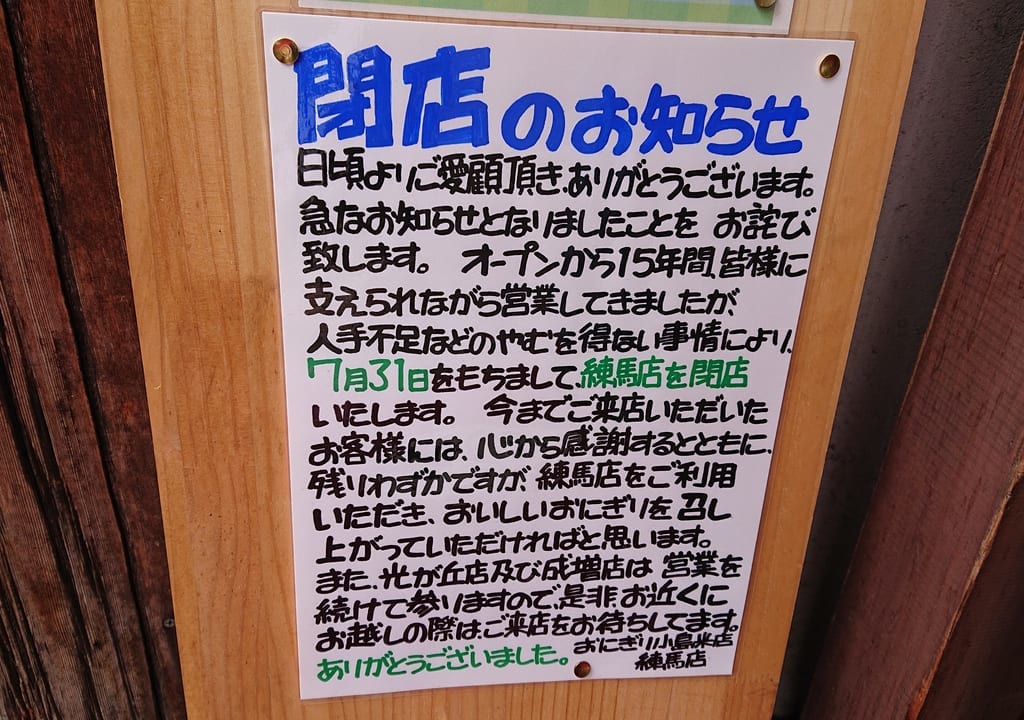 閉店のお知らせ
日頃よりご愛顧頂き、ありがとうございます。
急なお知らせとなりましたことを お詫び
致します。 オープンから15年間、皆様に
支えられながら営業してきましたが、
人手不足などのやむを得ない事情により、
7月31日をもちまして、練馬店を閉店
いたします。 今までご来店いただいた
お客様には、心から感謝するとともに、
残りわずかですが、練馬店をご利用
いただき、おいしいおにぎりを召し
上がっていただければと思います。
また、光が丘店及び成増店は 営業を
続けて参りますので、是非、お近くに
お越しの際はご来店をお待ちしてます。
ありがとうございました。
おにぎり小島米店
練馬店